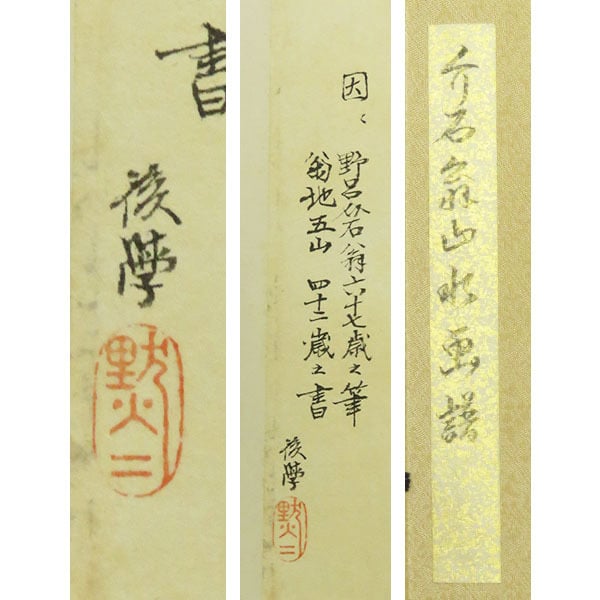 介石翁山水画譜
因ミ
野呂介石翁六十七歳之筆
菊地五山 四十二歳之書
後學
書
後學